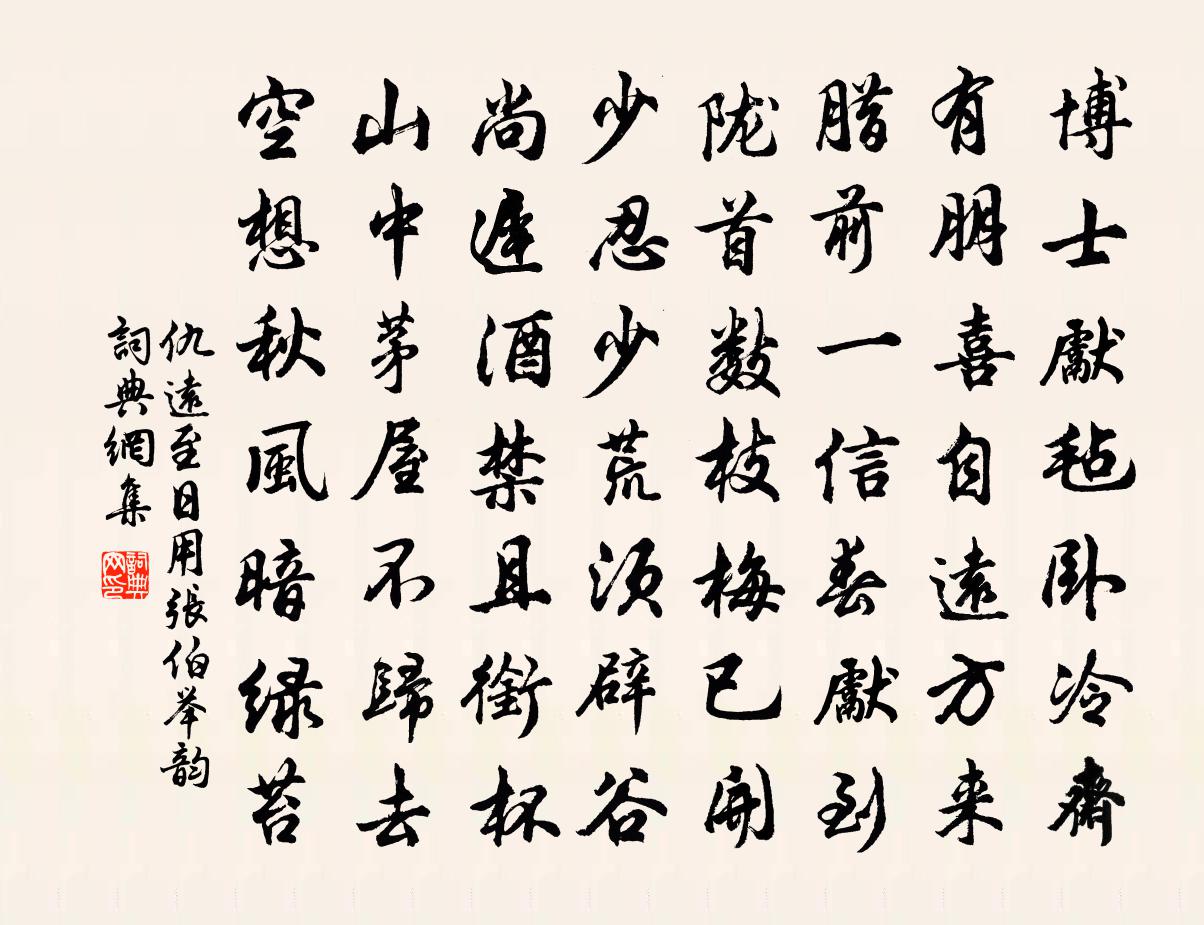 博士獻毡卧冷齋
有朋喜自遠方来
腊前一信春獻到
陇首数枝梅已開
少忍少荒须辟谷
尚遲酒禁且銜杯
山中茅屋不歸去
空想秋風暗绿苔
仇遠至日用張伯举韵
詞典網集
詞典网印